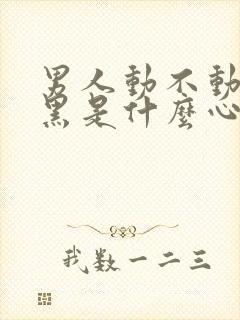 男人動不動
黑是什麼心
我数一二三